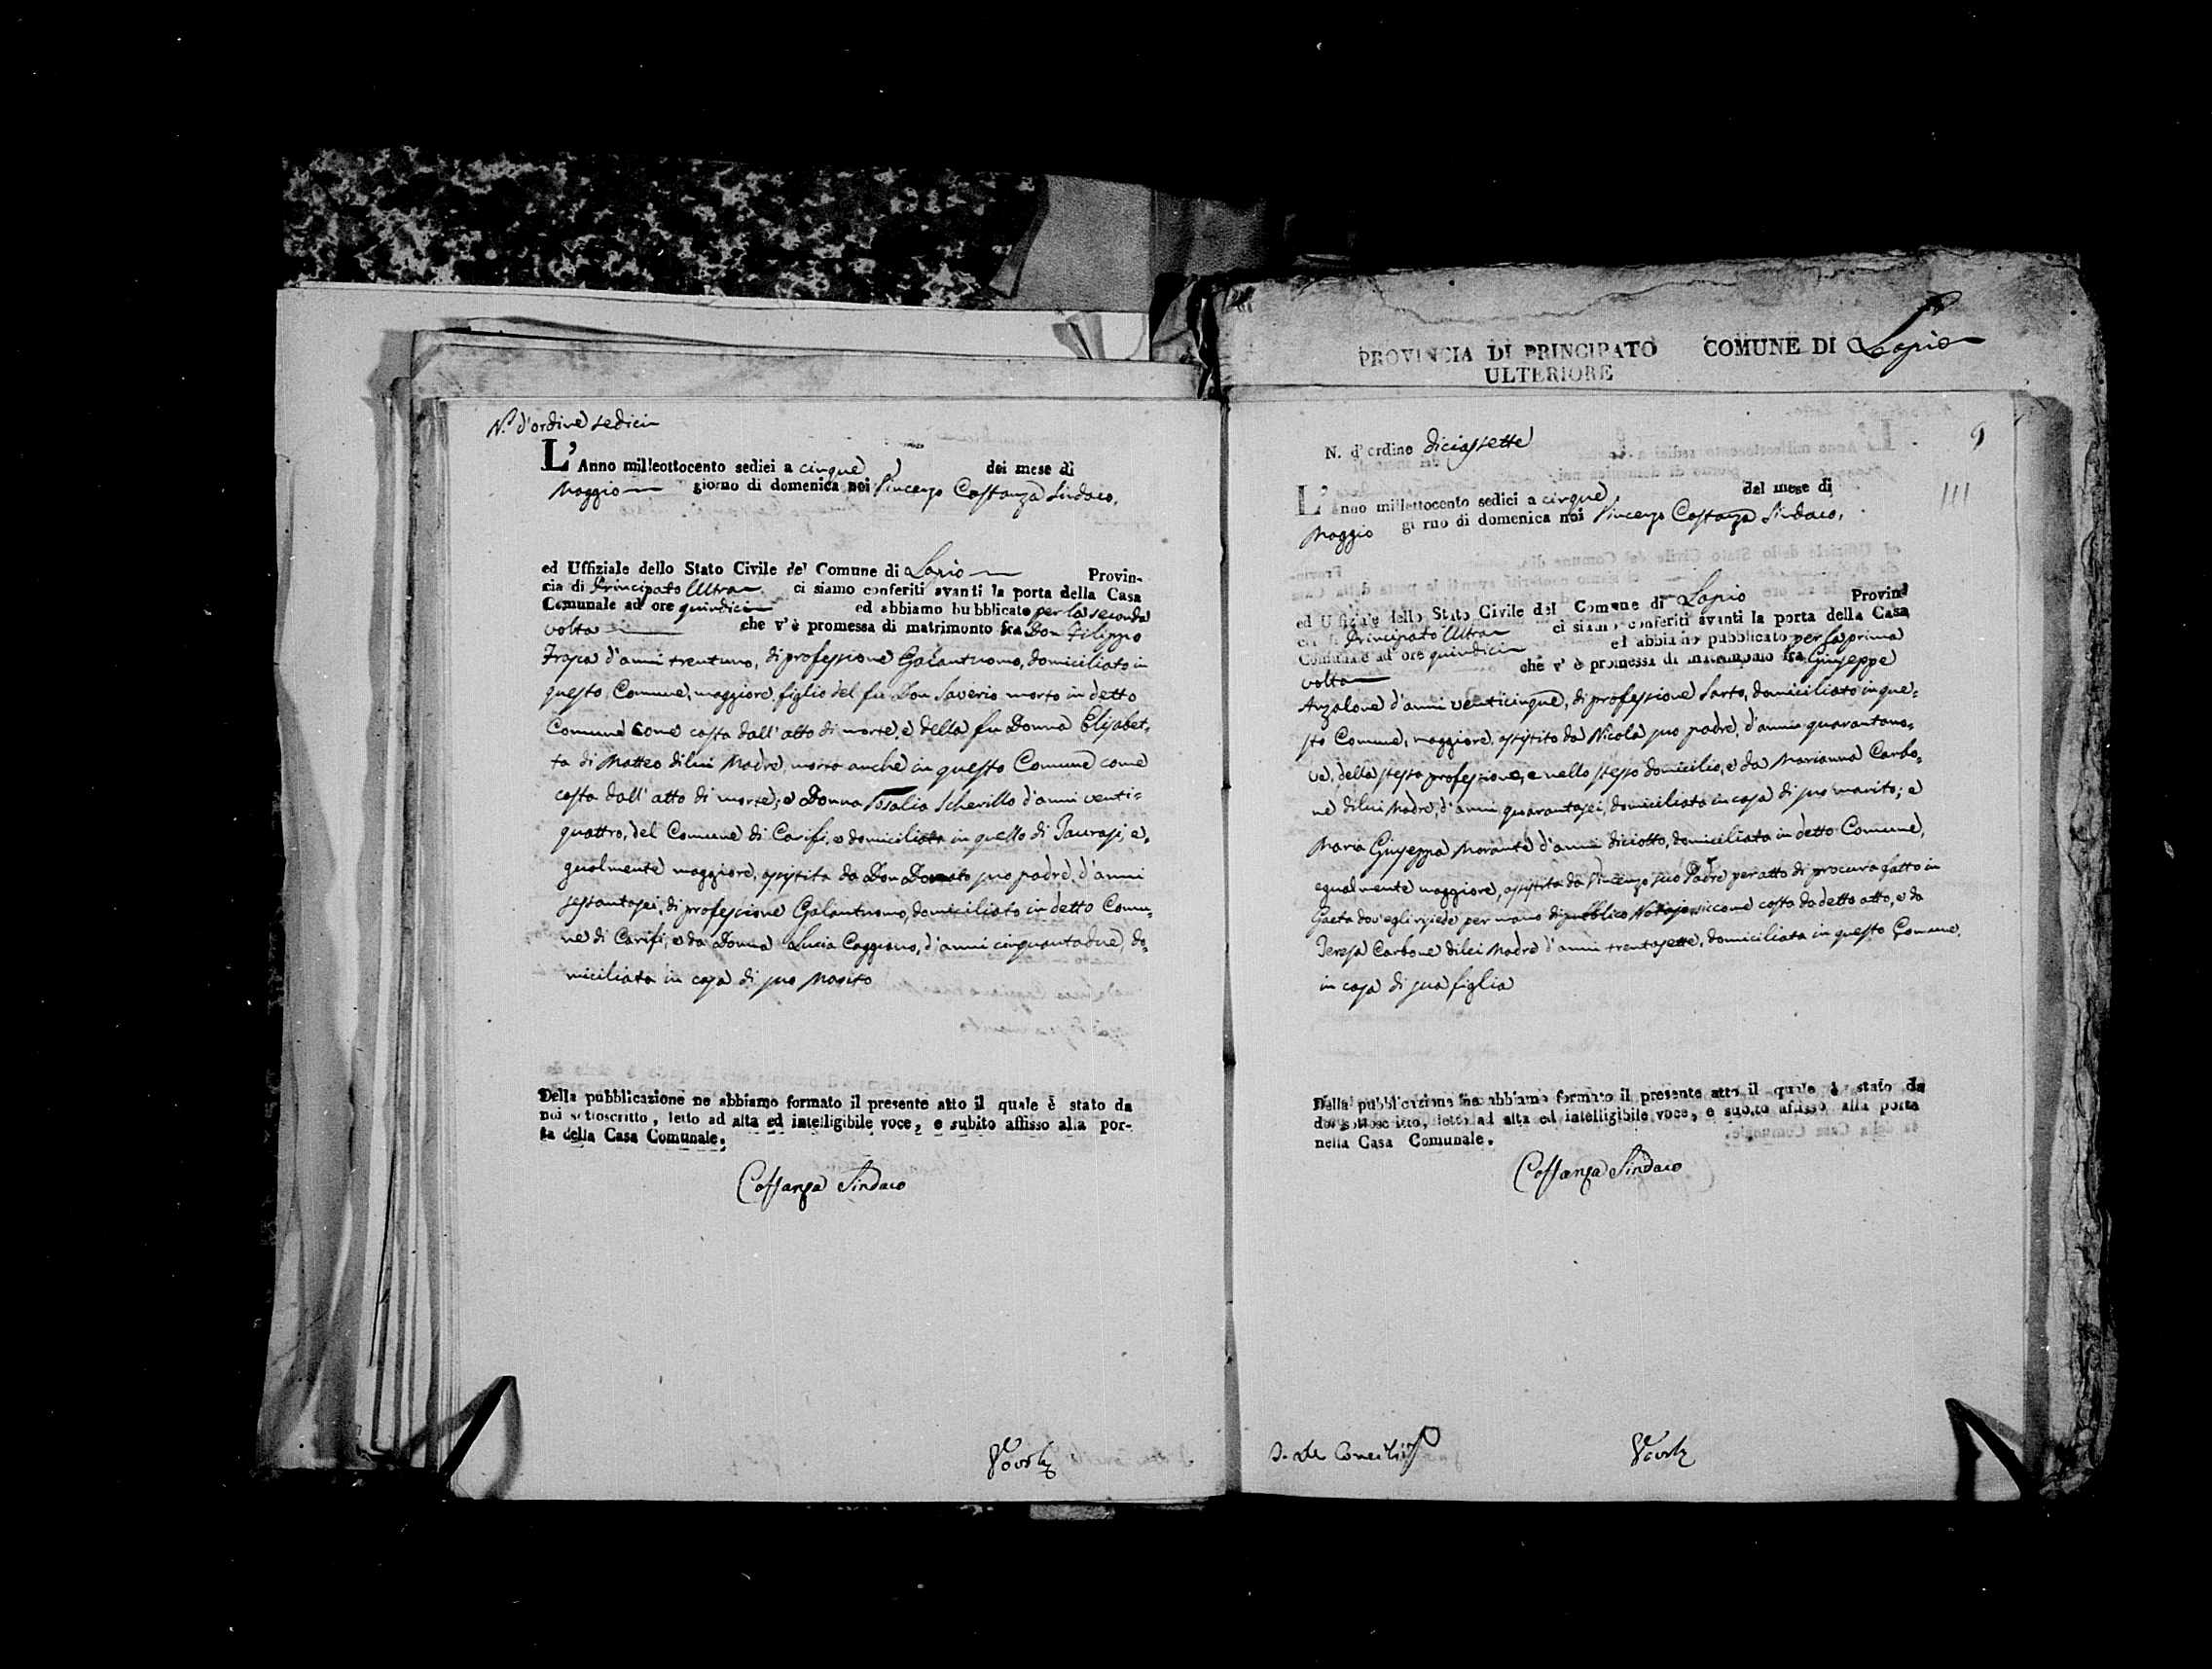 N.º d'ordine sedici
L'Anno milleottocento sedici a cinque del mese di
Maggio giorno di domenica noi Vincenzo Costanza Sindaco,
ed Uffiziale dello Stato Civile del Comune di Lapio Provin-
cia di Principato Ultra ci siamo conferiti avanti la porta della Casa
Comunale ad ore quindici ed abbiamo bubblicato per la seconda
volta che v'è promessa di matrimonto fra Don Filippo
d'anni trentuno, di professione Galantuomo, domiciliato in
questo Comune, maggiore, figlio del fu Don Saverio morto in detto
Comune come costa dall'atto di morte, e della fu Donna Elisabet-
ta di Matteo di lui Madre, morta anche in questo Comune come
costa dall'atto di morte; e Donna Rosalia Scherillo d'anni venti-
quattro, del Comune di Carife, e domiciliata in quello di Taurasi, e-
gualmente maggiore, assistita da Don Donato suo padre, d'anni
sessantasei, di professione Galantuomo, domiciliato in detto Comu-
ne di Carife, e da Donna Lucia Caggiano, d'anni cinquantadue, do-
miciliata in casa di suo Marito
Della pubblicazione ne abbiamo formato il presente atto il quale è stato da
noi sottoscritto, letto ad alta ed intelligibile voce, e subito affisso alla por-
ta della Casa Comunale.
Costanza Sindaco
PROVINCIA DI PRINCIPATO COMUNE DI Lapio
ULTERIORE
N. d'ordine diciassette 9
111
L'Anno millettocento sedici a cinque del mese di
Maggio giorno di domenica noi Vincenzo Costanza Sindaco,
ed Uffiziale dello Stato Civile del Comune di Lapio Provin
cia di Principato Ultra ci siamo conferiti avanti la porta della Casa
Comunale ad ore quindici ed abbiamo pubblicato per la prima
volta che v'è promessa di matrimonio fra Giuseppe
Anzalone d'anni venticinque, di professione Sarto, domiciliato in que-
sto Comune, maggiore, assistito da Nicola suo padre, d'anni quarantano-
ve, della stessa professione, e nello stesso domicilio, e da Marianna Carbo-
ne di lui Madre, d'anni quarantasei, domiciliata in casa di suo marito; e
Maria Giuseppa Morante d'anni diciotto, domiciliata in detto Comune,
egualmente maggiore, assistita da Vincenzo suo Padre per atto di procura fatto in
Gaeta dov'egli risiede per mano di pubblico Notajo, siccome costa da detto atto, e da
Teresa Carbone di lei Madre d'anni trentasette, domiciliata in questo Comune,
in casa di sua figlia
Della pubblicazione ne abbiamo formato il presente atto il quale è stato da
noi sottoscritto, letto ad alta ed intelligibile voce, e subito affisso alla porta
nella Casa Comunale.
Costanza Sindaco